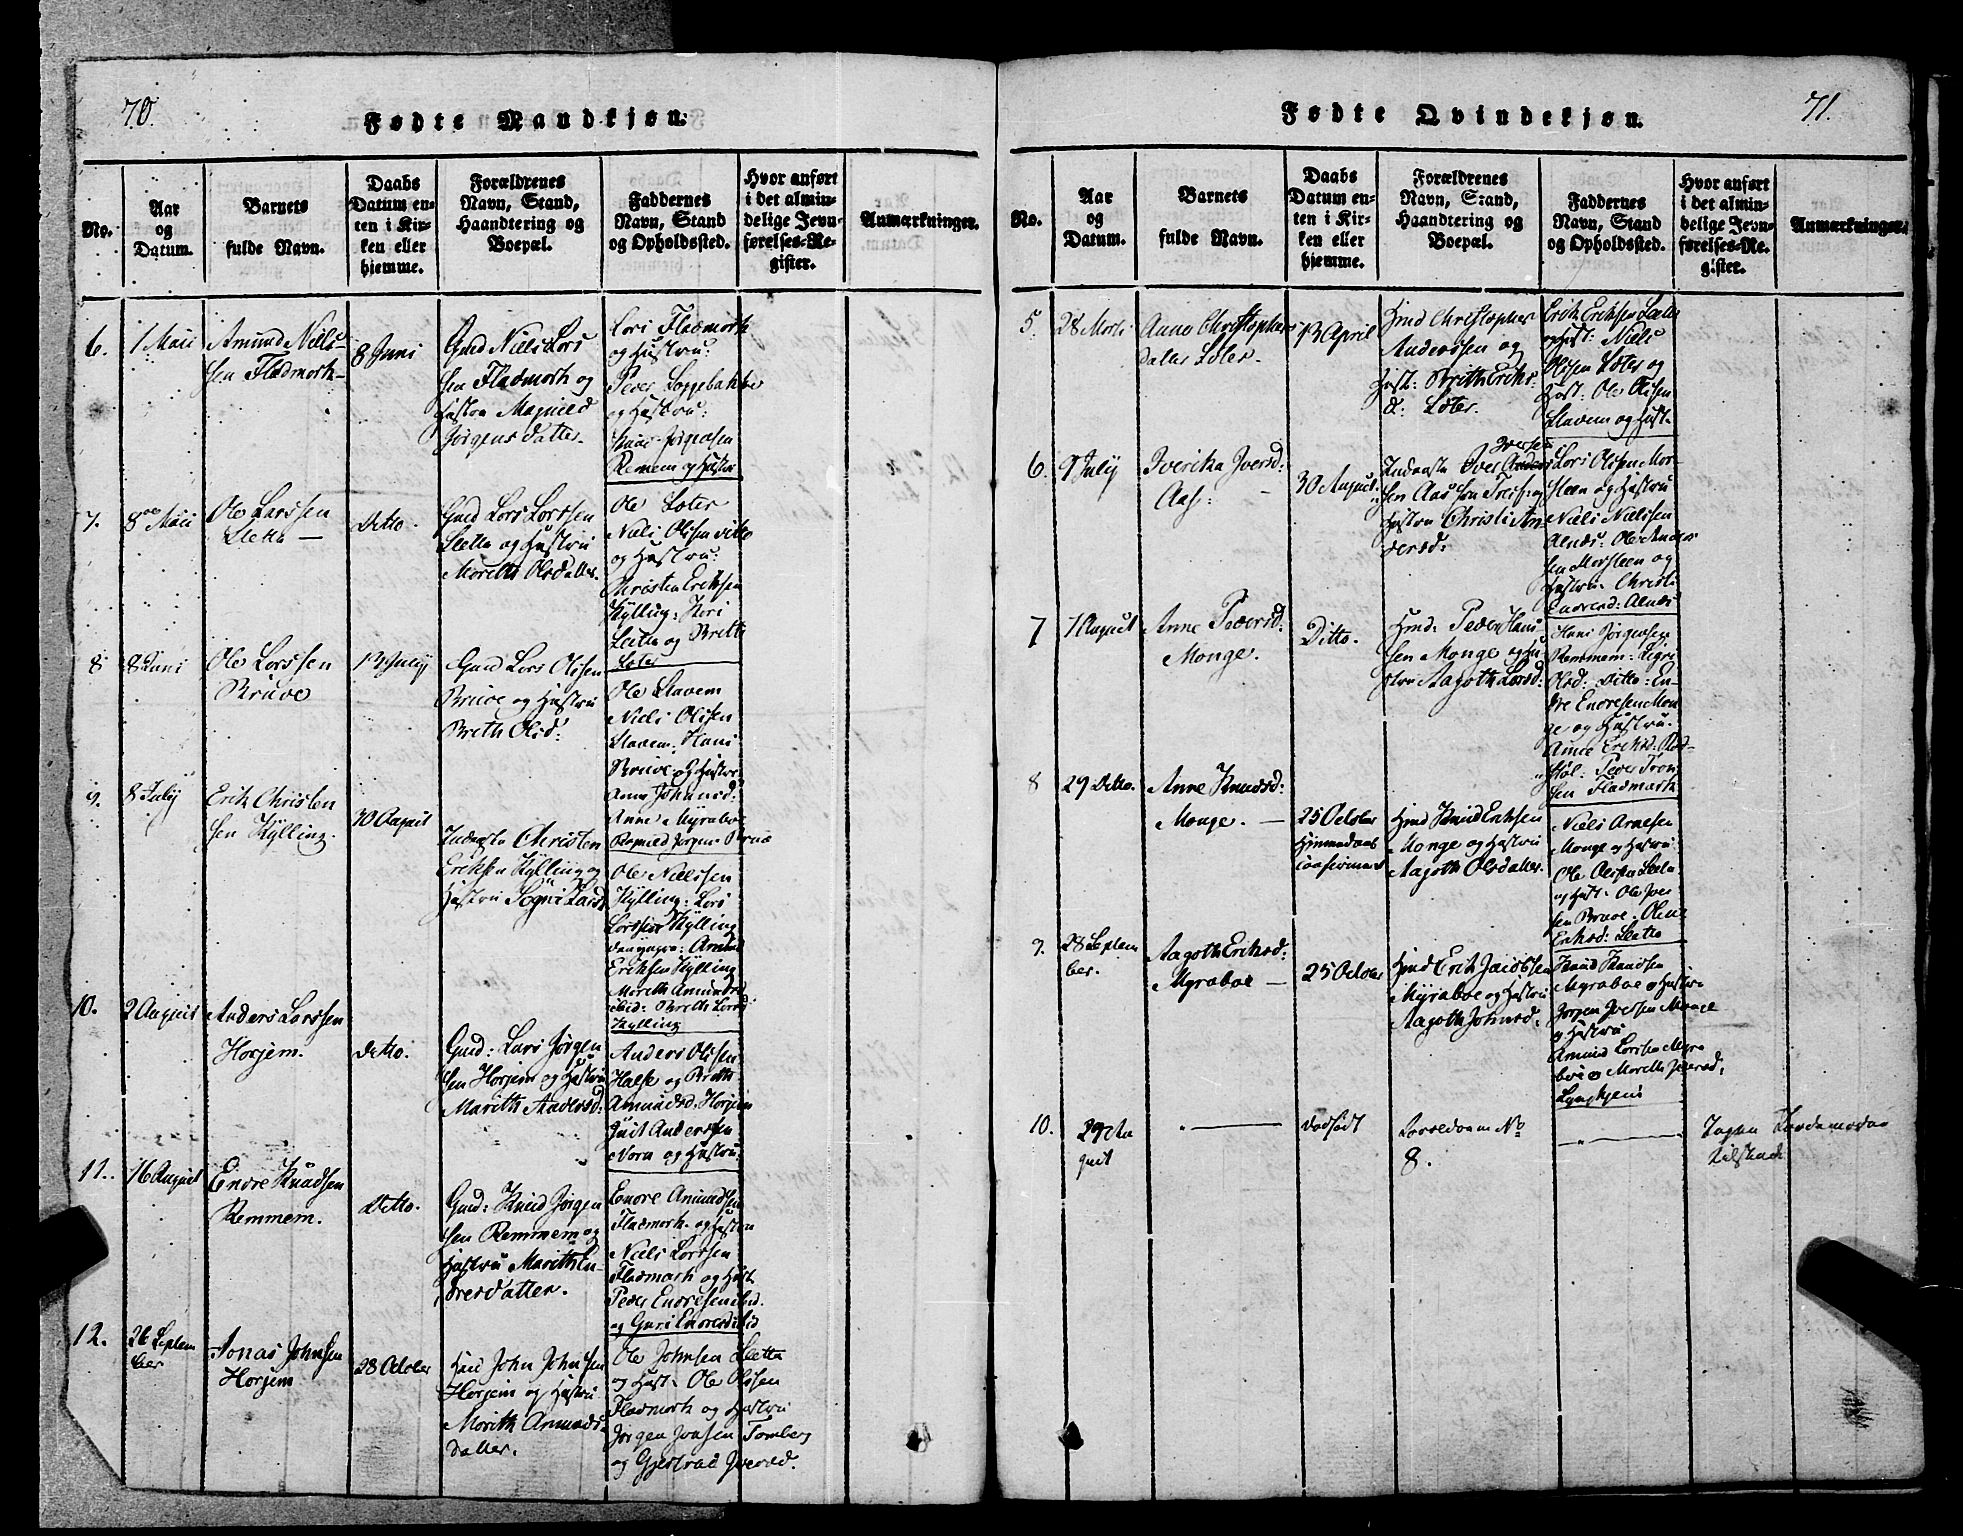 70.
Fødte Mandkjøn.
No.
Aar
og
Datum.
Barnets
fulde Navn.
Daabs
Datum en-
ten i Kir-
ken eller
hjemme.
Forældrenes
Navn, Stand,
Haandtering og
Boepæl.
Faddernes
Navn, Stand
og Opholdssted.
Hvor anført
i det almin-
delige Jevn-
førelses-Re-
gister.
Anmærkninger.
6.
1 Maii
Amund Niels-
sen Fladmork
8 Juni
Gmd Niels Lors
sen Fladmork og
Hustru Magnild
Jørgensdatter.
Lors Fladmork
og Hustru:
Peder Loppebakke
og Hustru:
Knud Jørgensen
Remem og Hustru
7.
8de Maii
Ole Larssen
Sletta —
Ditto.
Gmd Lors Lorssen
Sletta og Hustru
Morith Olsdatter.
Ole Løter
Niels Olssen ditto
og Hustru:
Christen Eriksen
Kylling: Kari
Sletta og Brith
Løter
8
8 Juni
Ole Lorssen
Bruve
13 July
Gmd Lors Olssen
Bruve og Hustru
Brith Olsd:
Ole Slavem
Niels Olssen
Slavem: Hans
Bruve og Hustru
Anne Johansd:
Anne Myraboe
Ragnild Jørgens Bruve
9.
8 July
Erik Christen
sen Kylling.
30 August
Inderste Christen
Eriksen Kylling og
Hustru Segni Larsd
Ole Nielssen
Kylling: Lors
Lorssen Kylling
Amund
Eriksen Kylling
Morith Amundsd
ibid: Brith Lorsd
Kylling
10.
2 August
Anders Lorssen
Horjem.
ditto.
Gmd: Lars Jørgen
sen Horjem og Hustru
Marith Andersd:
Anders Olssen
Halse og Brith
Amundsd: Horjem
Juit Anderssen
Norn og Hustru
11.
16 August
Endre Knudsen
Remmem.
Ditto.
Gmd: Knud Jørgen
sen Remmem og
Hustru Marith En-
dresdatter.
Endre Amundsen
Fladmork og Hustru
Niels Lorssen
Fladmark og Hust
Peder Endresen ibid.
og Guri Endresd ibid
12.
26 Septem
ber
Jonas Johnsen
Horjem
28 October
John Johnsen
Horjem og Hustru
Morith Amunds-
datter.
Ole Johnsen Sletta
og Hust: Ole Olssen
Fladmork og Hustru
Jørgen Jonsen Tomberg
og Gjertrud Iversd.
71.
Fødte Qvindekjøn.
No.
Aar
og
Datum.
Barnets
fulde Navn.
Daabs
Datum en-
ten i Kir-
ken eller
hjemme.
Forældrenes
Navn, Stand,
Haandtering og
Boepæl.
Faddernes
Navn, Stand
og Opholdssted.
Hvor anført
i det almin-
delige Jevn-
førelses-Re-
gister.
Anmærkninger.
5.
28 Morts
Anne Christophers
datter Løter.
13 April
Hmd Christopher
Anderssen og
Hust: Brith Eriks
d: Løter.
Erik Eriksen Løter
og Hust: Niels
Olssen Løter og
Hust: Ole Olssen
Slavem og Hust.
6.
9 July
Iverika Iversd:
Aas: —
30 August.
Inderste Iver Iversen
sen Aas
Hustru Christi An
dersd:
Lors Olssen Mor-
steen og Hustru
Niels Nielssen
Alnæs: Ole Anders
sen Morsteen og
Hustru: Christi
Endresd: Alnæs
7
1 August
Anne Pedersd:
Monge.
Ditto.
Hmd: Peder Hans
sen Monge og Hu
stru Aagoth Larsd:
Hans Jørgensen
Remmem: Sigri
Olsd: ditto: En-
dre Endresen Mon
ge og Hustru.
Anne Eriksd: Rød-
støl: Peder Tron
sen Fladmark
8
29 Ditto.
Anne Knudsd:
Monge. —
25 October
Hjemmedaab
confirmeret
Hmd Knud Eriksen
Monge og Hustru
Aagoth Olsdatter.
Niels Arnesen
Monge og Hustru:
Ole Olssen Sletta
og Hust: Ole Iver
sen Bruve. Olene
Eriksd: Sletta
9.
28 Septem
ber.
Aagoth Eriksd:
Myraboe —
25 October
Hmd Erik Jacobsen
Myraboe og Hustru
Aagoth Johnsd:
Knud Knudsen
Myraboe og Hustru
Jørgen Iverssen Monge
og Hustru
Amund Lorssen Myra
boe og Morith Iversd,
Lyngheim
10.
29 Au
gust
—
dødfødt
No
8.
—
Ingen Jordemoder
tilstæde